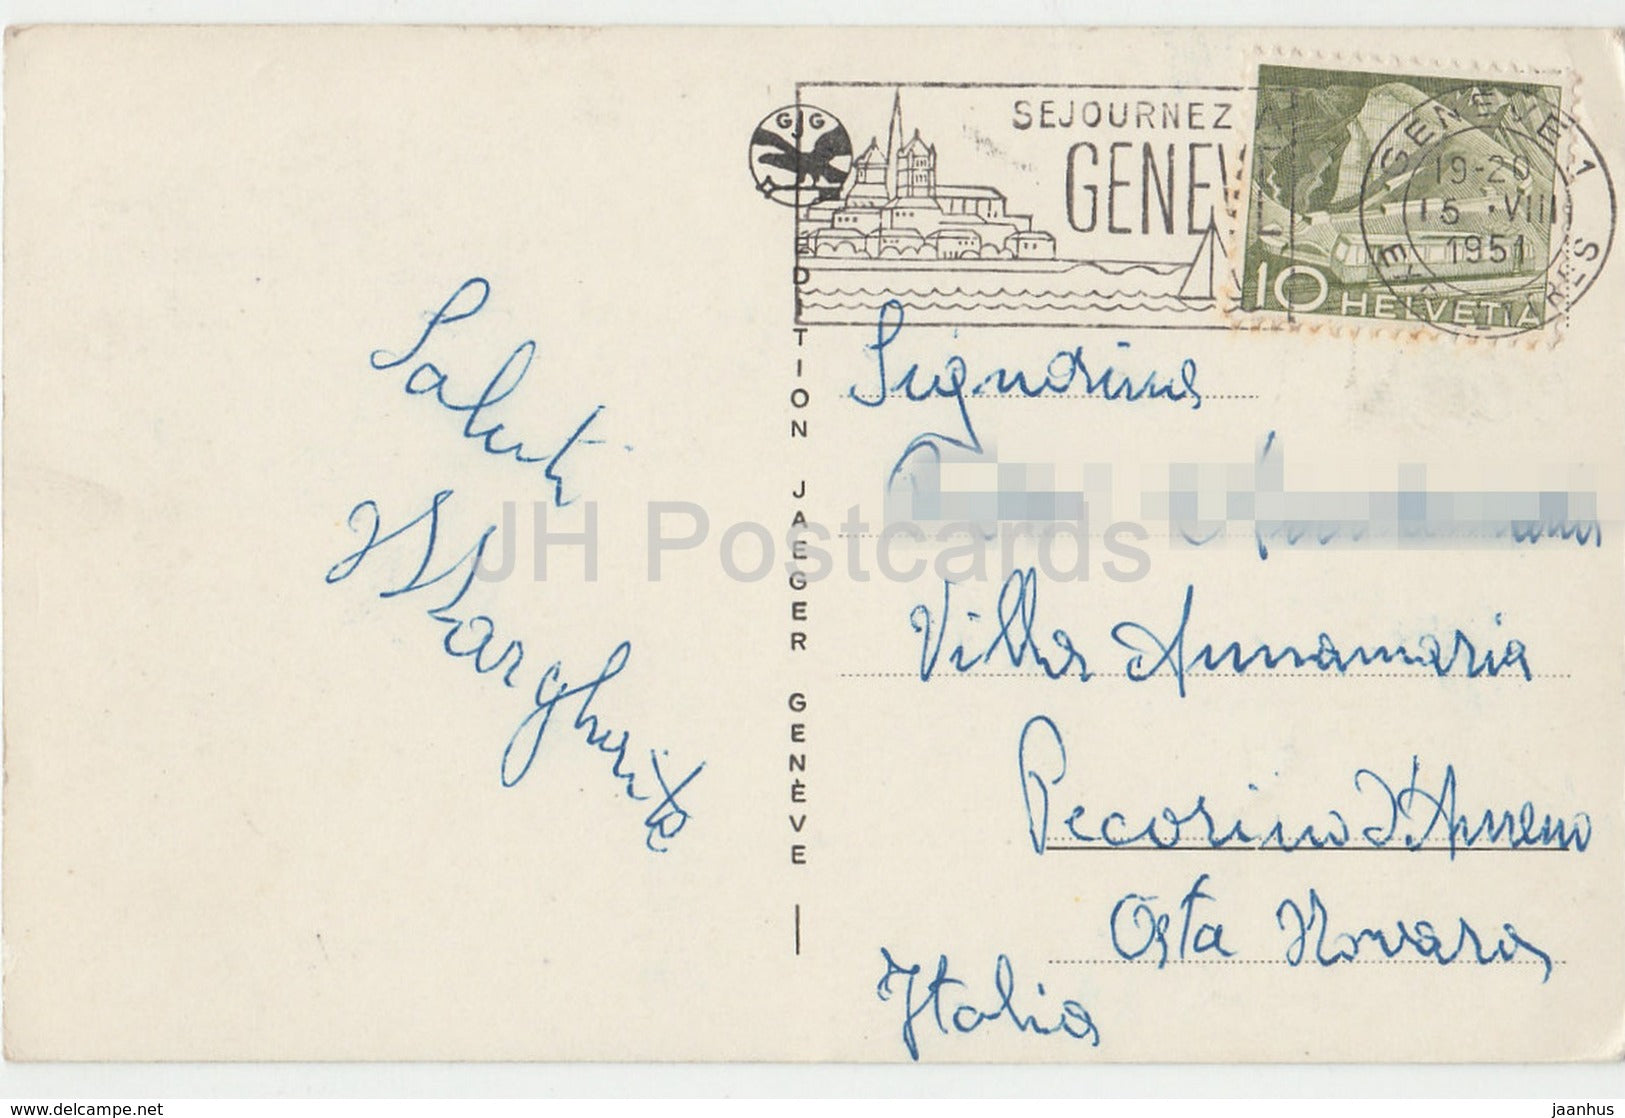 SEJOURNEZ
GENEV
G G
GENEVE 1
19-20
15 · VIII
1951
10 HELVETIA
EDITION JAEGER GENÈVE
Saluti
Margherita
Signorina
Villa Annamaria
Pecorino d'Armeno
Osta Novara
Italia
JH Postcards
delcampe.net
jaanhus